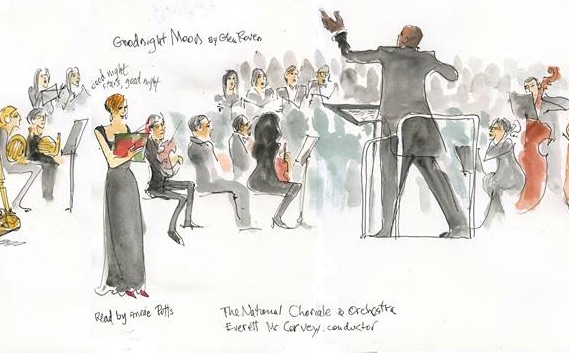 Goodnight Moon by Glen Roven
good night
stars, good night
Read by Annie Potts
The National Chorale & Orchestra
Everett Mc Corvey, conductor